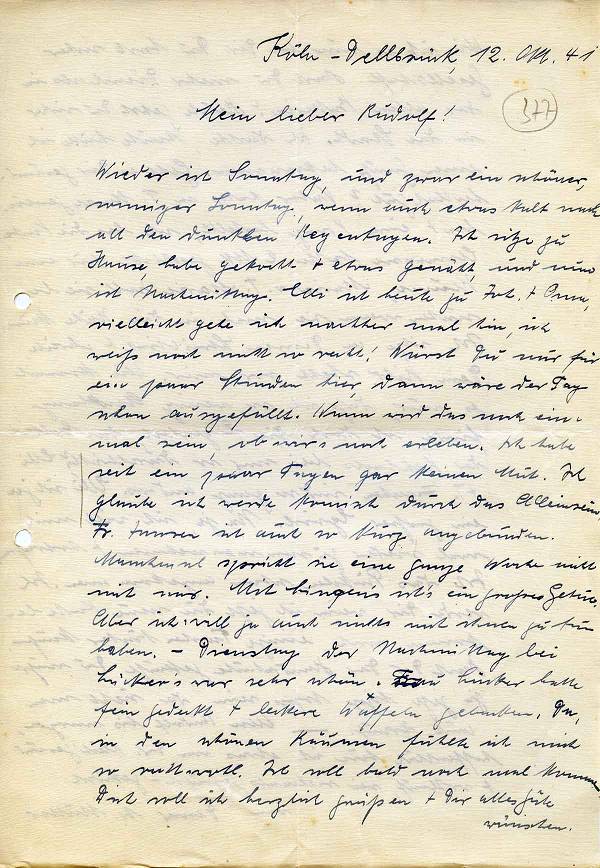 Köln-Dellbrück, 12. Okt. 41
377
Mein lieber Rudolf!
Wieder ist Sonntag, und zwar ein schöner,
sonniger Sonntag, wenn auch etwas kalt nach
all den dunklen Regentagen. Ich sitze zu
Hause, habe gekocht + etwas genäht, und nun
ist Nachmittag. Elli ist heute zu + Oma,
vielleicht gehe ich nachher mal hin, ich
weiß noch nicht so recht! Wärst Du nur für
ein paar Stunden hier, dann wäre der Tag
schon ausgefüllt. Wann wird das noch ein-
mal sein, ob wir's noch erleben. Ich habe
seit ein paar Tagen gar keinen Mut. Ich
glaube ich werde komisch durch das Alleinsein.
Fr. Jansen ist auch so kurz angebunden.
Manchmal spricht sie eine ganze Woche nicht
mit mir. Mit ist's ein großes Getue.
Aber ich will ja auch nichts mit ihnen zu tun
haben. - Dienstag der Nachmittag bei
Lücker's war sehr schön. Frau Lücker hatte
fein gedeckt + leckere Waffeln gebacken. Da,
in den schönen Räumen fühlte ich mich
so recht wohl. Ich soll bald noch mal kommen
Dich soll ich herzlich grüßen + Dir alles Gute
wünschen.